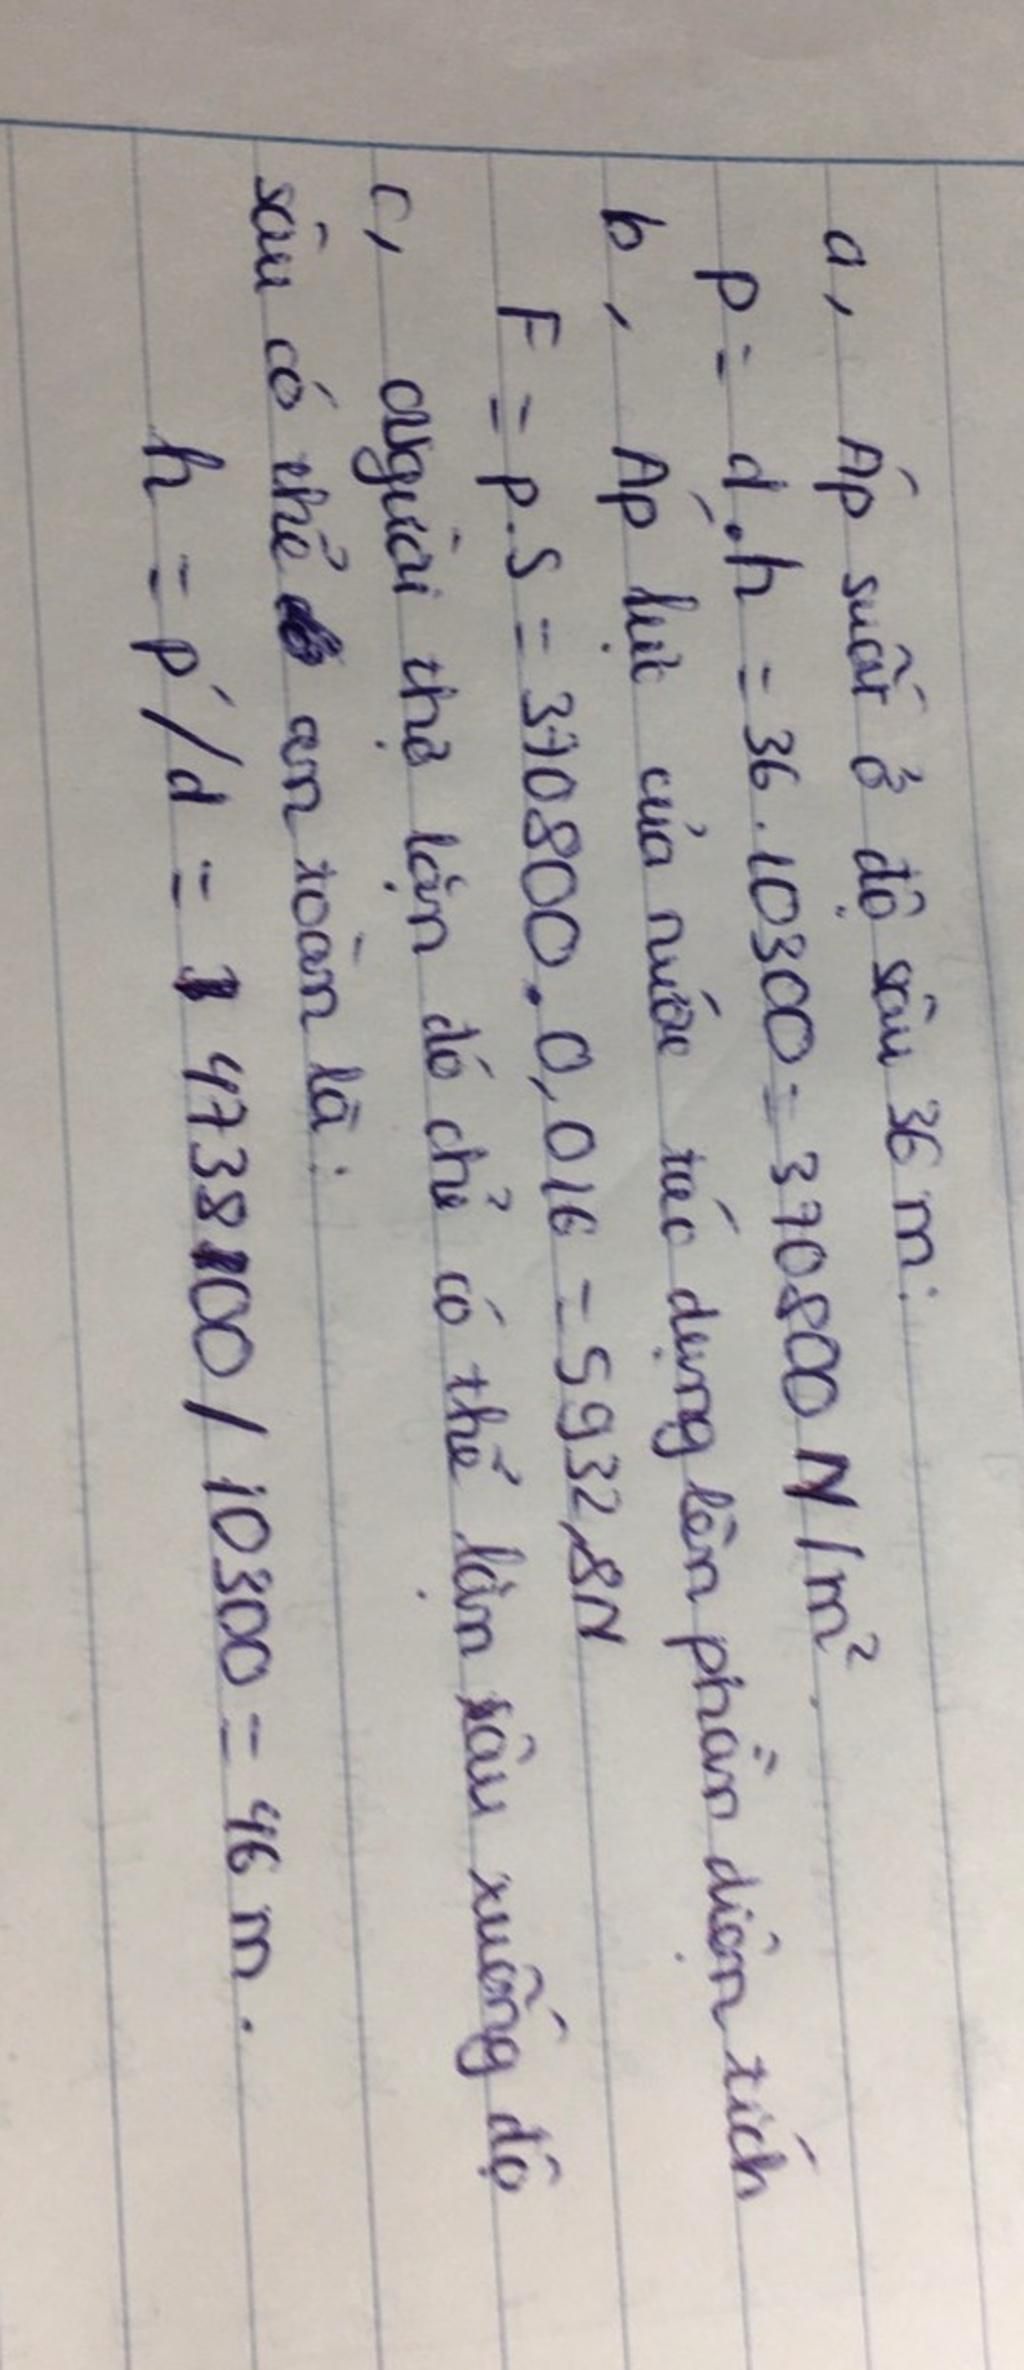 a, Áp suất ở độ sâu 36 m:
p = d.h = 36.10300 = 370800 N/m²
b, Áp lực của nước tác dụng lên phần diện tích
F = p.S = 370800.0,016 = 5932,8N
c, Người thợ lặn đó chỉ có thể lặn sâu xuống độ
sâu có thể an toàn là:
h = p'/d = 473800 / 10300 = 46 m.